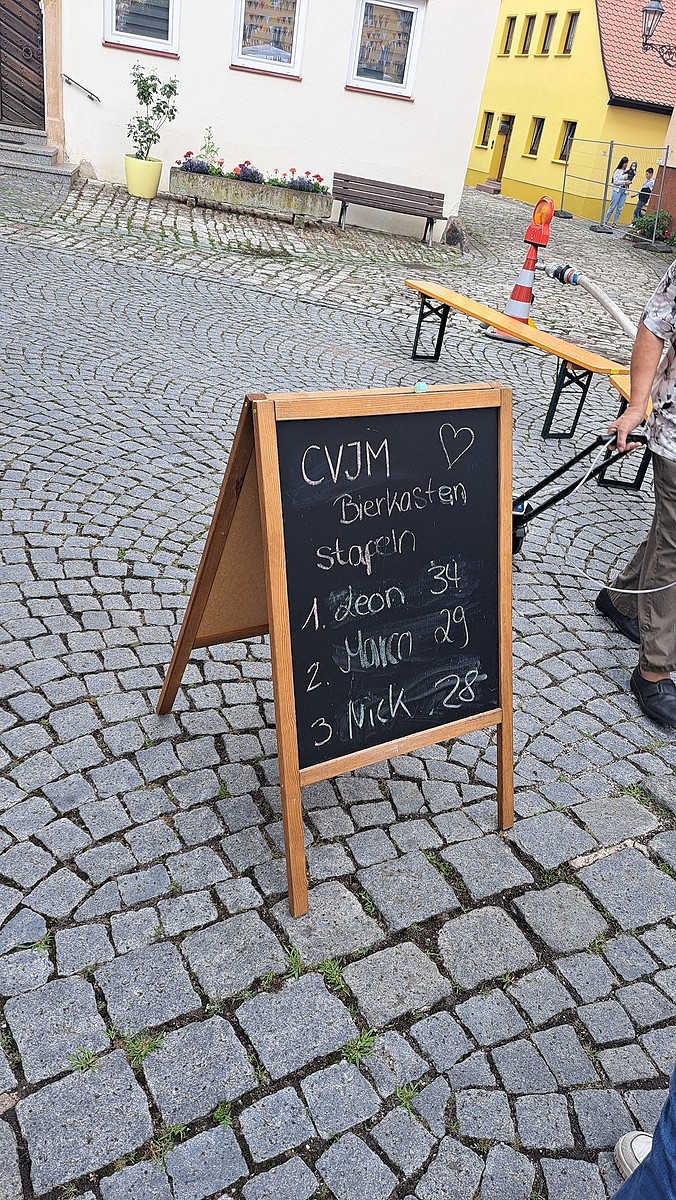 CVJM ♡
Bierkasten
stapeln
1. Leon 34
2. Marco 29
3. Nick 28